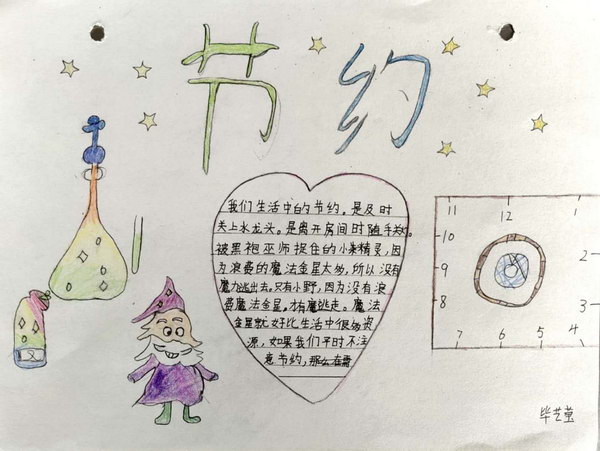 节约
我们生活中的节约。是及时
关上水龙头。是离开房间时随手关灯。
被黑袍巫师捉住的小精灵,因
为浪费的魔法金星太多,所以没有
魔力逃出去。只有小野,因为没有浪
费魔法金星。才有魔逃走。魔法
金星就好比生活中很多资
源,如果我们平时不注
意节约,那么在需
11 12 1
10 2
9
8 3
7 6 5 4
毕艺萤